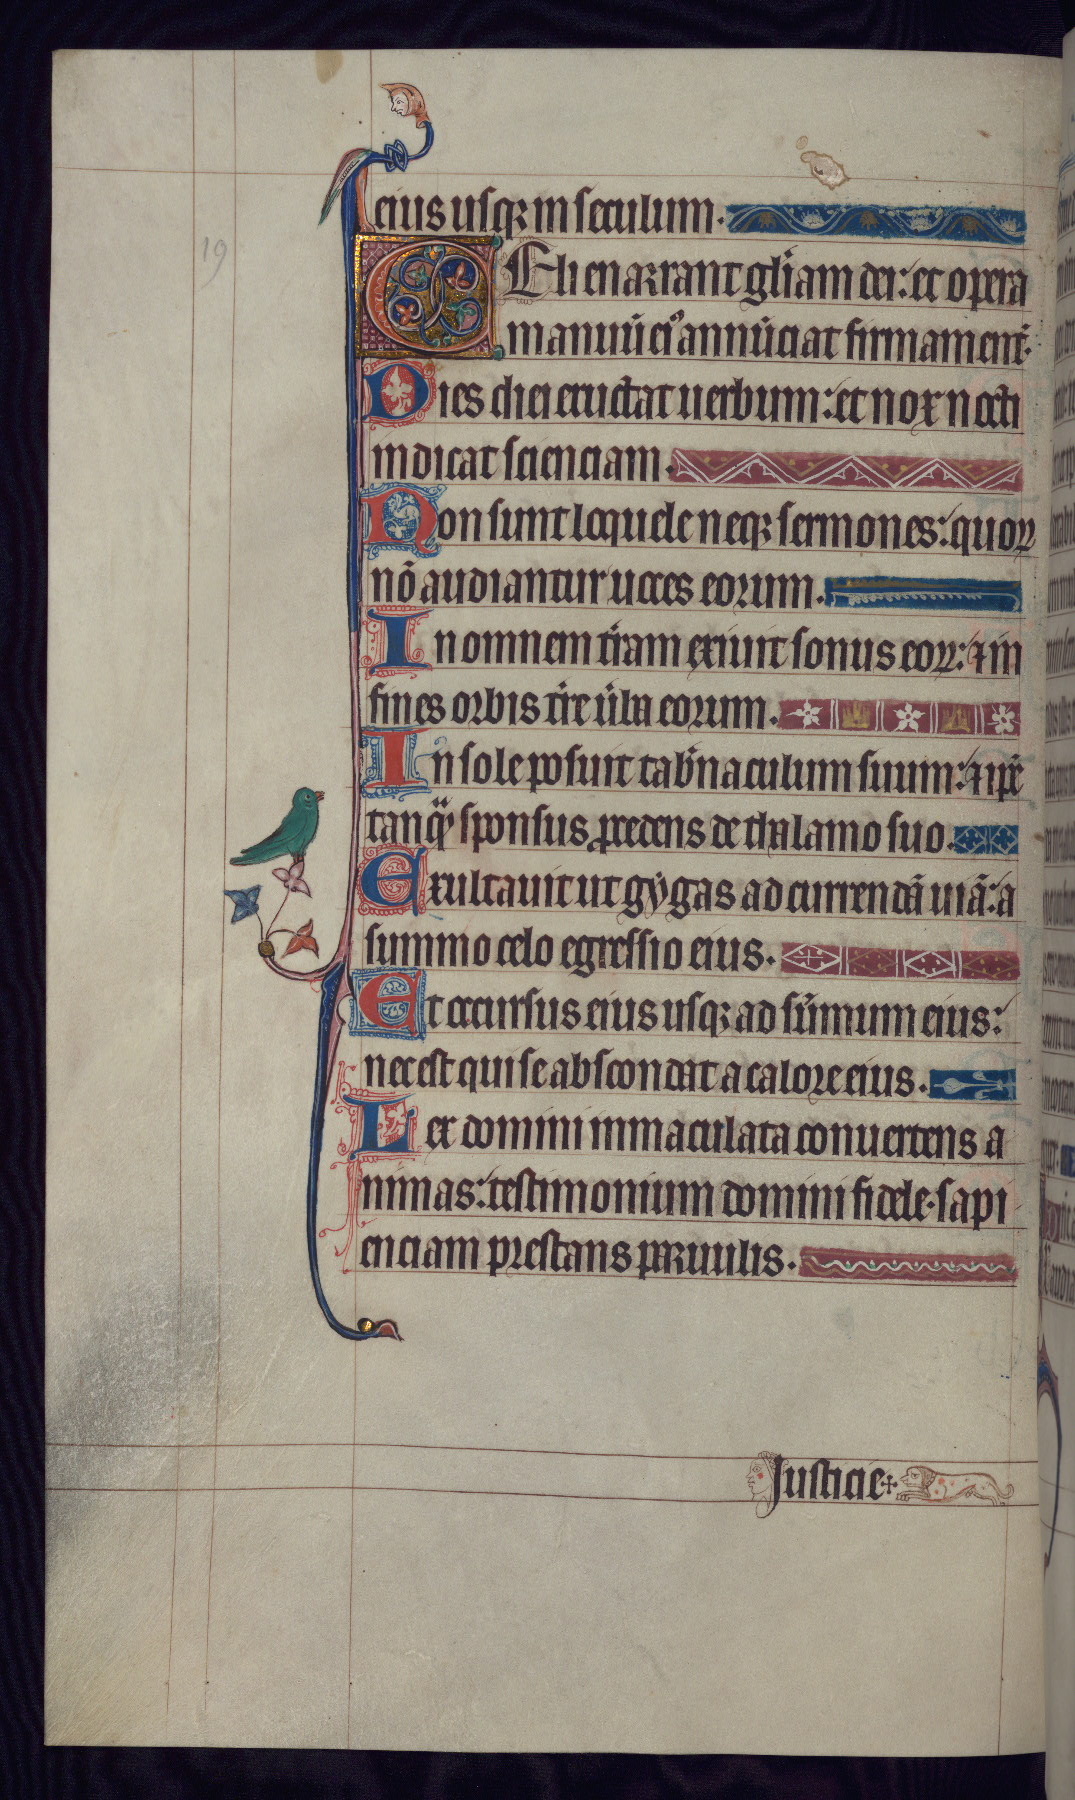 eius usqꝫ in seculum.
19
CEli enarrant gl̓iam dei: et opera
manuū ei᷒ annūciat firmamentˀ.
Dies diei eructat uerbum: et nox nocti
indicat scienciam.
Non sunt loquele neqꝫ sermones: quoꝝ
nō audiantur uoces eorum.
In omnem t̓ram exiuit sonus eoꝝ: ⁊ in
fines orbis t̓re ūba eorum.
In sole posuit tab̓naculum suum: ⁊ ip̄e
tanqͣꝫ sponsus ꝓcedens de thalamo suo.
Exultauit ut gygas ad currendā uiā: a
summo celo egressio eius.
Et occursus eius usqꝫ ad sūmum eius:
nec est qui se abscondat a calore eius.
Lex domini inmaculata conuertens a
nimas: testimonium domini fidele. sapi
enciam prestans paruulis.
Justicie